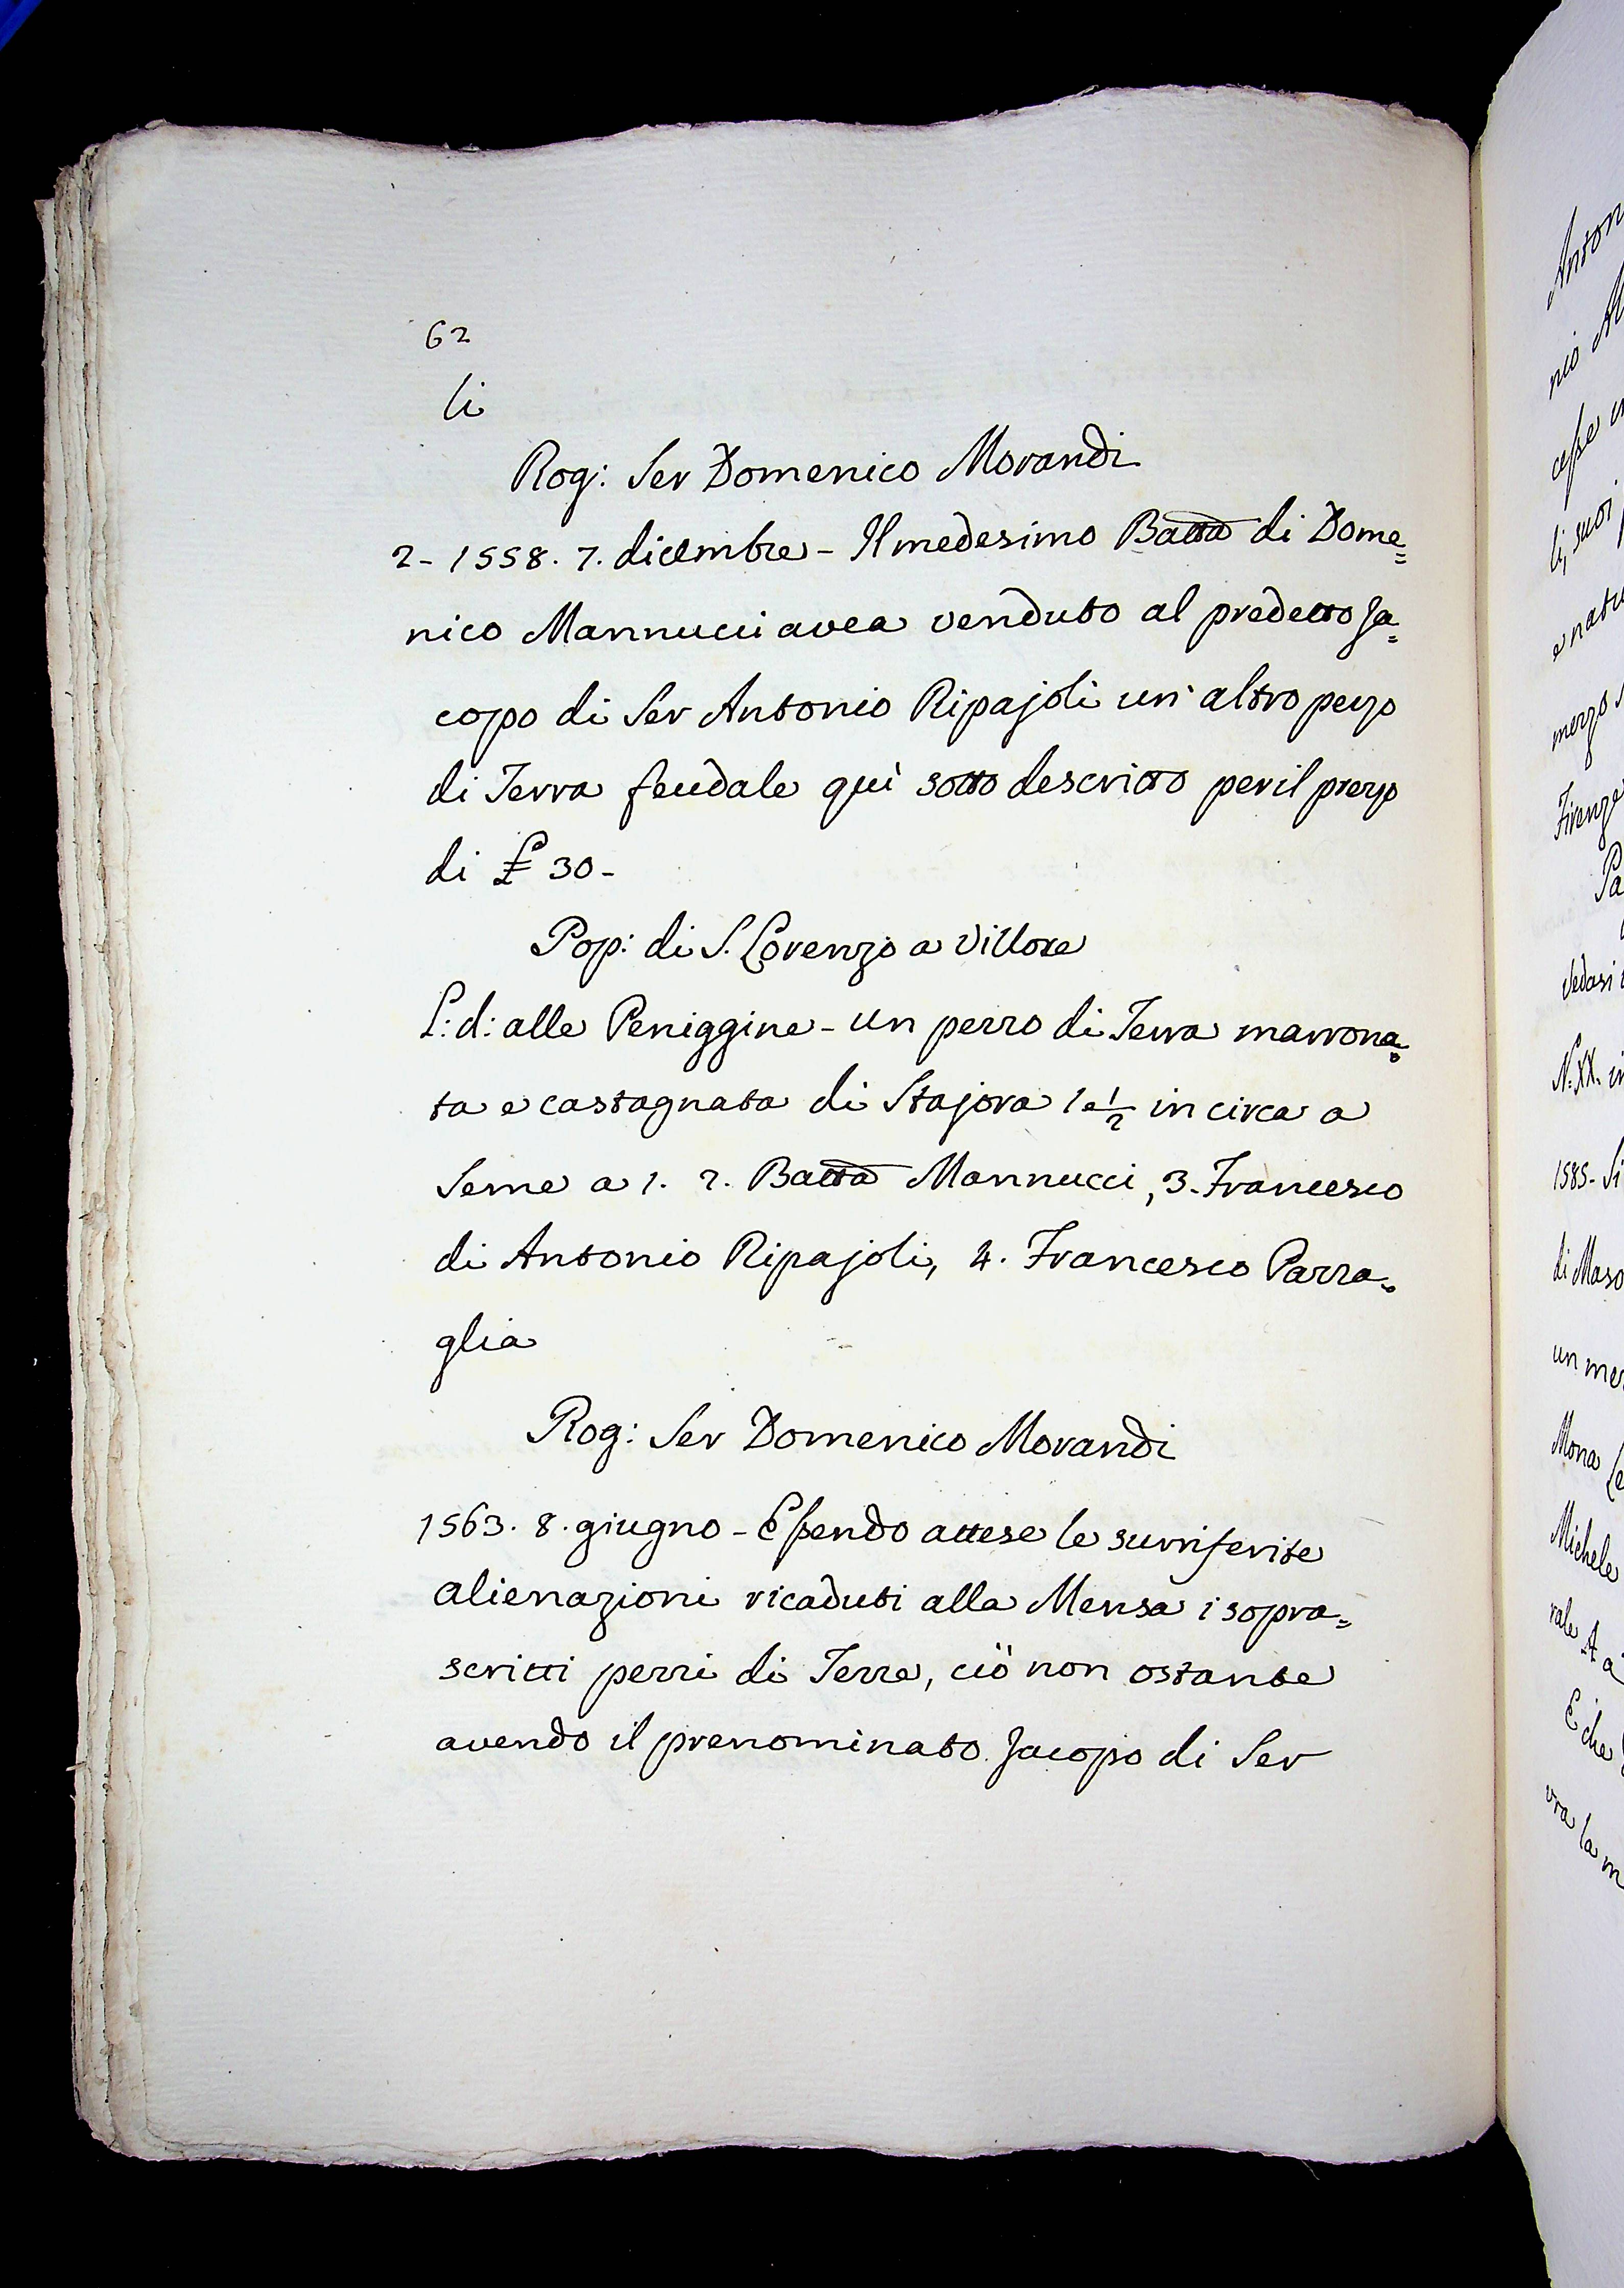 62
li
Rog: Ser Domenico Morandi
2 - 1558. 7. dicembre - Il medesimo Batta di Dome=
nico Mannucci avea venduto al predetto Ja=
copo di Ser Antonio Ripajoli un altro pezzo
di Terra feudale quì sotto descritto per il prezzo
di £ 30 -
Pop: di S. Lorenzo a Villore
L: d: alle Peniggine - un pezzo di Terra marrona=
ta e castagnata di Stajora 1 e 1/2 in circa a
Seme a 1. 2. Batta Mannucci, 3. Francesco
di Antonio Ripajoli, 4. Francesco Parra=
glia
Rog: Ser Domenico Morandi
1563. 8. giugno - Essendo attese le surriferite
alienazioni ricaduti alla Mensa i sopra=
scritti pezzi di Terre, ciò non ostante
avendo il prenominato Jacopo di Ser
Anton
nio
cesse
li, suoi
e natu
mezzo
Firenze
Pa
Vedasi
N. XX. in
1585. Si
di Maso
un mez
Mona Le
Michele
rale A a
E che
vra la m